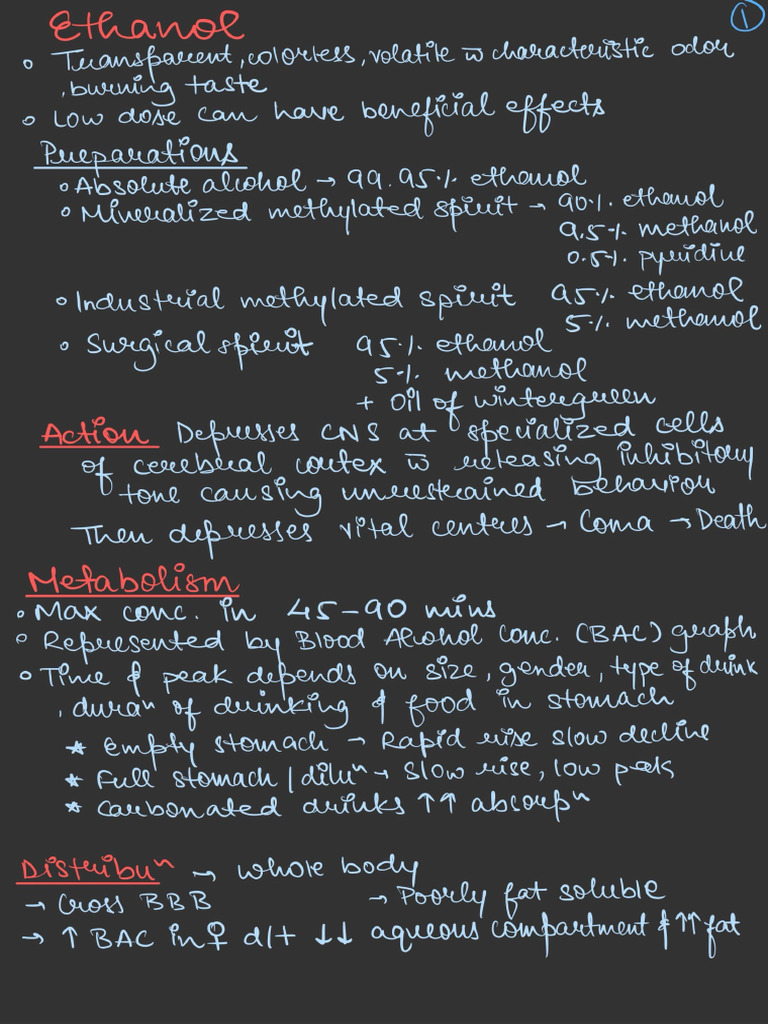 ①
Ethanol
○ Transparent, colorless, volatile w̄ characteristic odor
, burning taste
○ Low dose can have beneficial effects
Preparations
○ Absolute alcohol → 99.95% ethanol
○ Mineralized methylated spirit → 90% ethanol
9.5% methanol
0.5% pyridine
○ Industrial methylated spirit 95% ethanol
5% methanol
○ Surgical spirit 95% ethanol
5% methanol
+ Oil of wintergreen
Action Depresses CNS at specialized cells
of cerebral cortex w̄ releasing inhibitory
tone causing unrestrained behavior
Then depresses vital centres → Coma → Death
Metabolism
○ Max conc. in 45-90 mins
○ Represented by Blood Alcohol Conc. (BAC) graph
○ Time & peak depends on size, gender, type of drink
, duraⁿ of drinking & food in stomach
* empty stomach → Rapid rise slow decline
* Full stomach / diluⁿ → slow rise, low peak
* Carbonated drinks ↑↑ absorpⁿ
Distribuⁿ → whole body
→ Cross BBB → Poorly fat soluble
→ ↑ BAC in ♀ d/t ↓↓ aqueous compartment & ↑↑ fat